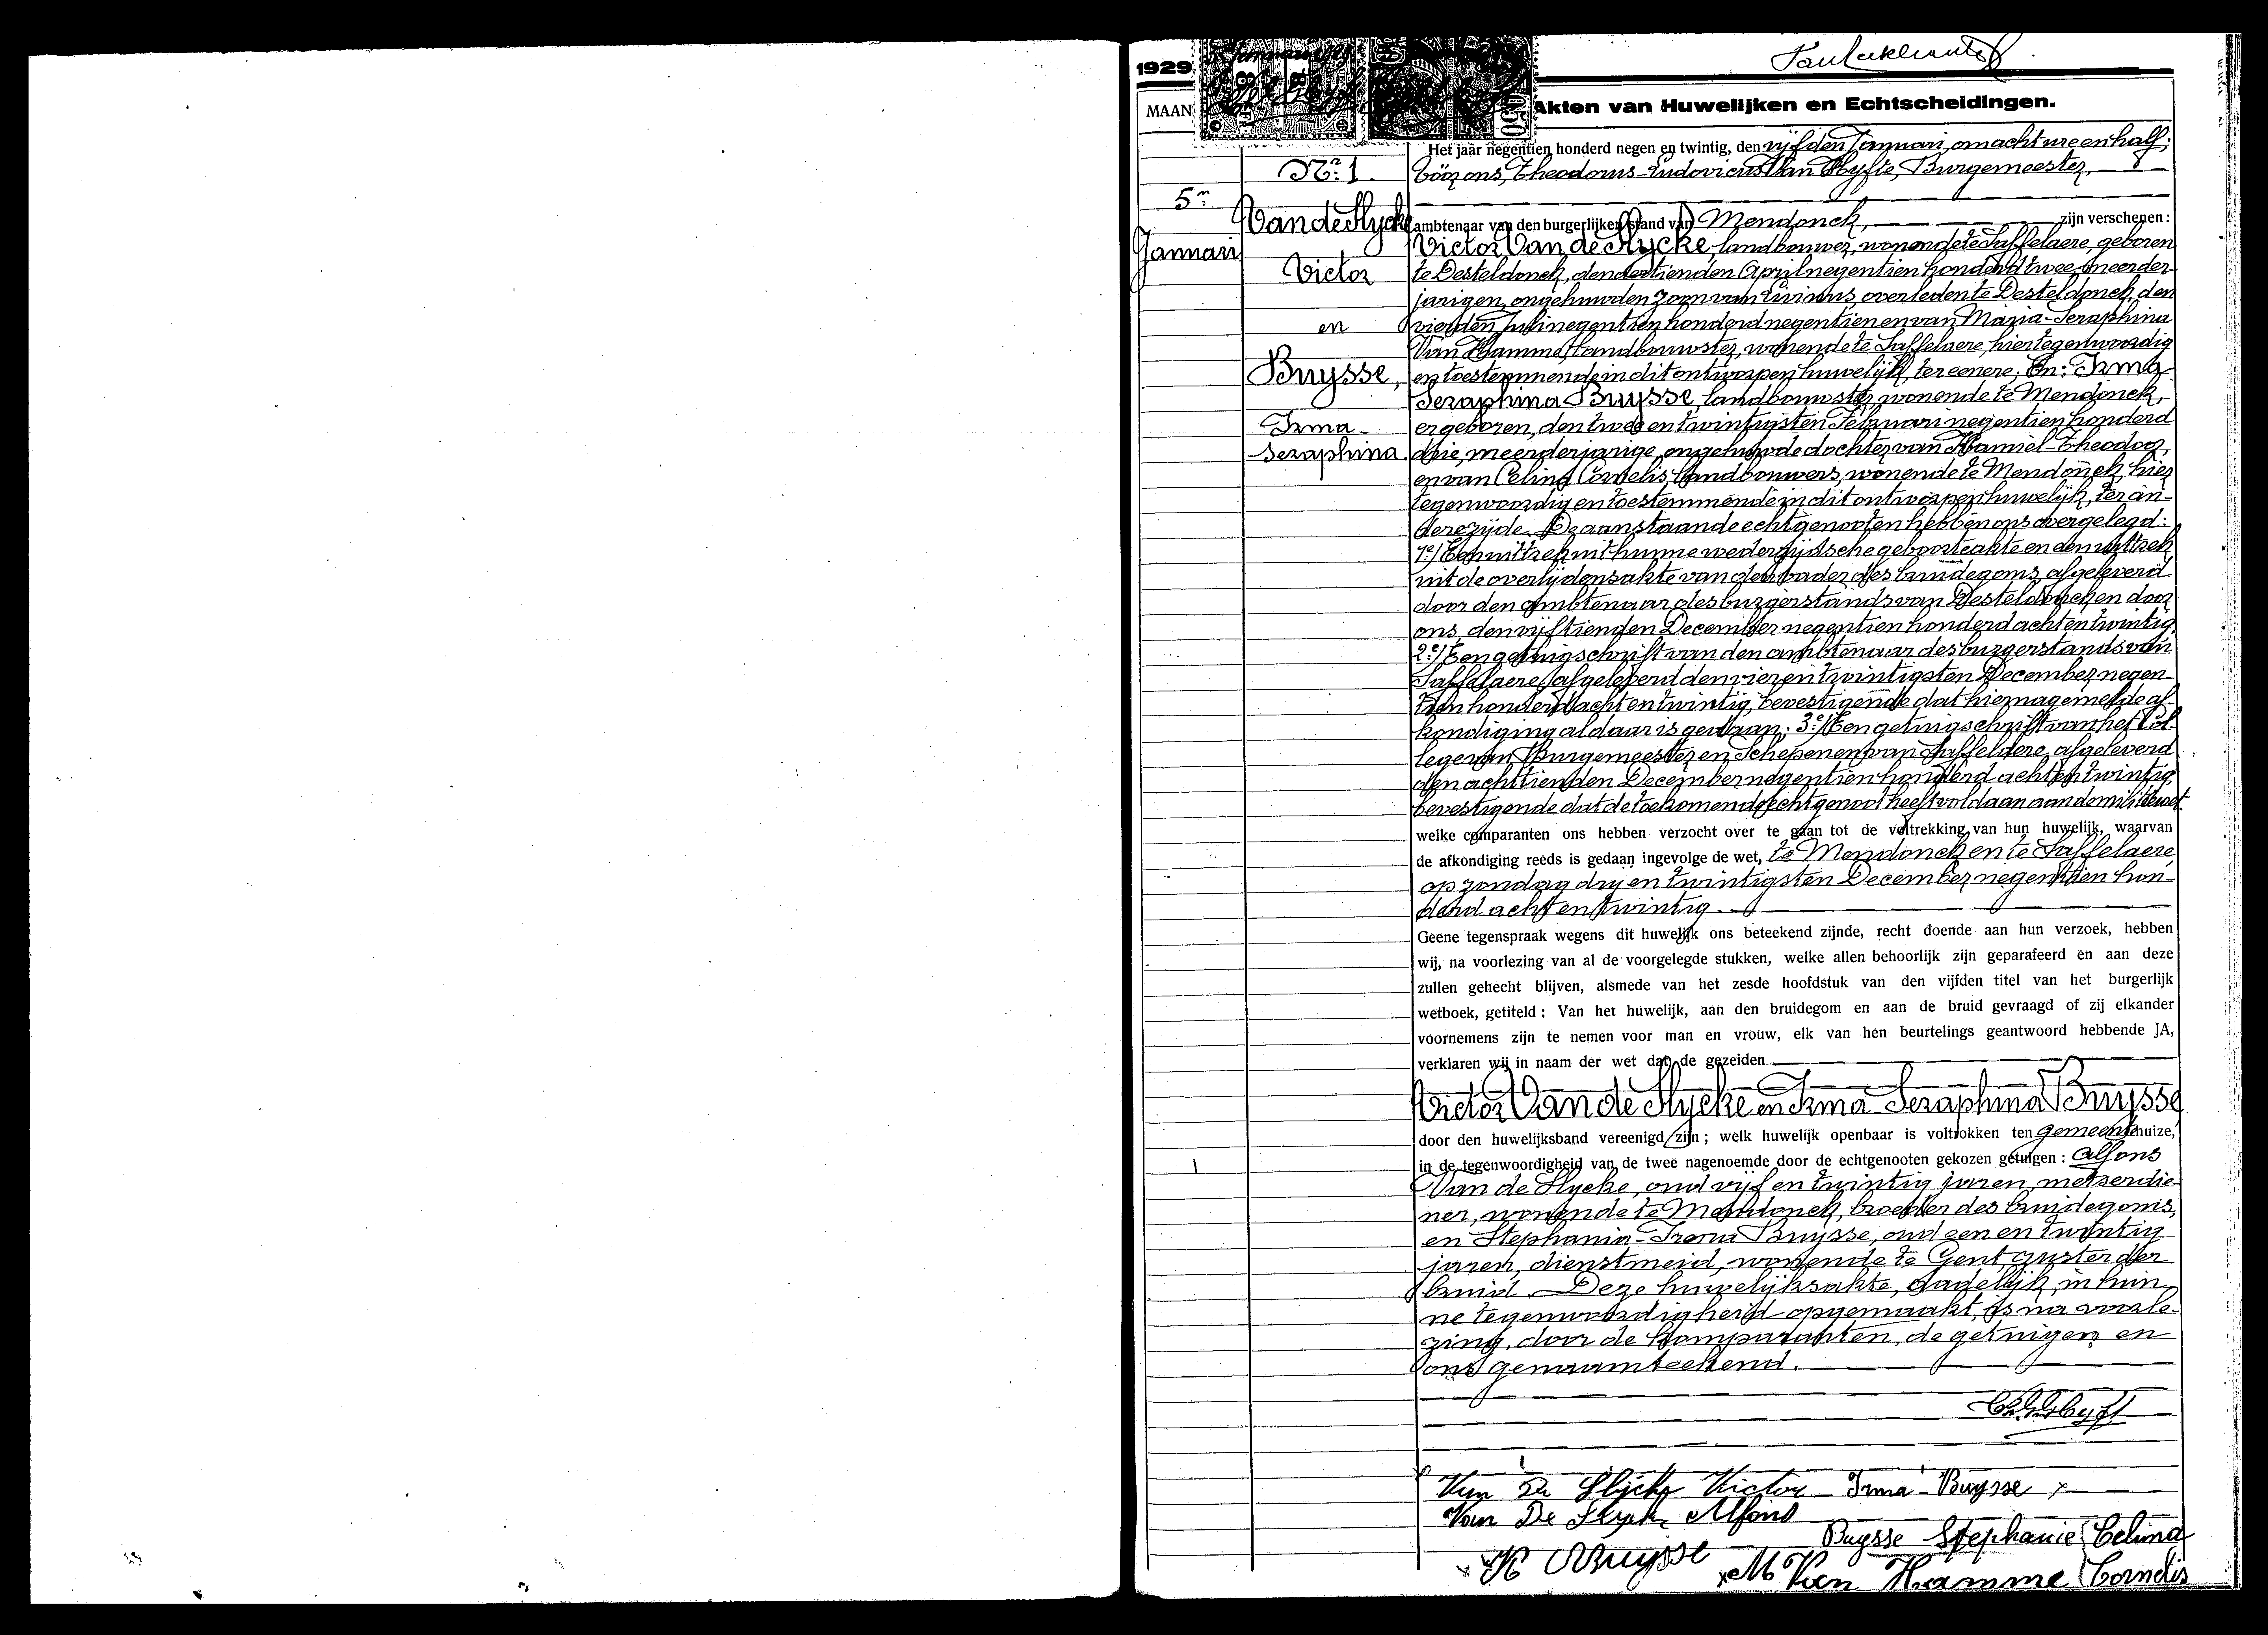 1929
Akten van Huwelijken en Echtscheidingen.
MAAN
Het jaar negentien honderd negen en twintig, den vijfden Januari, om acht ure en half,
Nr. 1. Vóór ons, Theodorus-Ludovicus Van Hyfte, Burgemeester,
5n
Van de Slycke ambtenaar van den burgerlijken stand van Mendonck, zijn verschenen:
Januari Victor Van de Slycke, landbouwer, wonende te Saffelaere, geboren
Victor te Desteldonck, den dertienden April negentien honderd twee, meerder
jarigen, ongehuwden zoon van Livinus, overleden te Desteldonck, den
en vierden Juli negentien honderd negentien en van Maria-Seraphina
Van Hamme, landbouwster, wonende te Saffelaere, hier tegenwoordig
Buysse, en toestemmende in dit ontworpen huwelijk, ter eenere; En: Irma
Seraphina Buysse, landbouwster, wonende te Mendonck,
Irma- er geboren, den twee en twintigsten Februari negentien honderd
Seraphina. drie, meerderjarige, ongehuwde dochter van Kamiel-Theodoor,
en van Celina Cornelis, landbouwers, wonende te Mendonck, hier
tegenwoordig en toestemmende in dit ontworpen huwelijk, ter an-
dere zijde. De aanstaande echtgenooten hebben ons overgelegd:
1e/ Een uittrek uit hunne wederzijdsche geboorteakte en den uittrek
uit de overlijdensakte van den vader des bruidegoms, afgeleverd
door den ambtenaar des burgerstands van Desteldonck en door
ons, den vijftienden December negentien honderd acht en twintig
2e/ Een getuigschrift van den ambtenaar des burgerstands van
Saffelaere, afgeleverd den vier en twintigsten December negen-
tien honderd acht en twintig, bevestigende dat hiernagemelde af-
kondiging aldaar is gedaan; 3e/ Een getuigschrift van het Col-
lege van Burgemeester en Schepenen van Saffelaere, afgeleverd
den achttienden December negentien honderd acht en twintig,
bevestigende dat de toekomende echtgenoot heeft voldaan aan de militiewet
welke comparanten ons hebben verzocht over te gaan tot de voltrekking van hun huwelijk, waarvan
de afkondiging reeds is gedaan ingevolge de wet, te Mendonck en te Saffelaere,
op zondag dry en twintigsten December negentien hon-
derd acht en twintig.
Geene tegenspraak wegens dit huwelijk ons beteekend zijnde, recht doende aan hun verzoek, hebben
wij, na voorlezing van al de voorgelegde stukken, welke allen behoorlijk zijn geparafeerd en aan deze
zullen gehecht blijven, alsmede van het zesde hoofdstuk van den vijfden titel van het burgerlijk
wetboek, getiteld: Van het huwelijk, aan den bruidegom en aan de bruid gevraagd of zij elkander
voornemens zijn te nemen voor man en vrouw, elk van hen beurtelings geantwoord hebbende JA,
verklaren wij in naam der wet dat de gezeiden
Victor Van de Slycke en Irma Seraphina Buysse
door den huwelijksband vereenigd zijn; welk huwelijk openbaar is voltrokken ten gemeentehuize,
in de tegenwoordigheid van de twee nagenoemde door de echtgenooten gekozen getuigen: Alfons
Van de Slycke, oud vijf en twintig jaren, metserdie-
ner, wonende te Mendonck, broeder des bruidegoms,
en Stephania-Irena Buysse, oud een en twintig
jaren, dienstmeid, wonende te Gent, zuster der
bruid. Deze huwelijksakte, dadelijk in hun-
ne tegenwoordigheid opgemaakt, is na voorle-
zing, door de komparanten, de getuigen en
ons genaamteekend.
Van De Slycke Victor Irma Buysse
Van De Slycke Alfons
Buysse Stephanie Celina
K Buysse M Van Hamme Cornelis